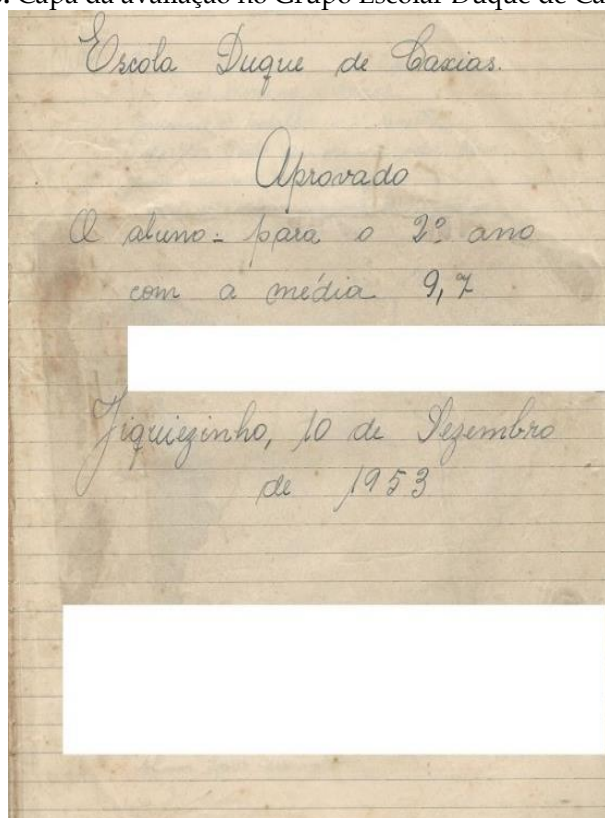 Capa da avaliação no Grupo Escolar Duque de Ca
Escola Duque de Caxias.
Aprovado
O aluno - para o 2º ano
com a média 9,7
Jiquiezinho, 10 de Dezembro
de 1953